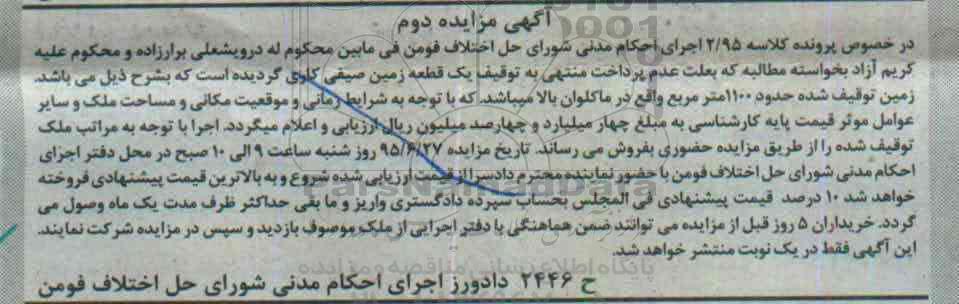 آگهی مزایده دوم
در خصوص پرونده کلاسه ۲/۹۵ اجرای احکام مدنی شورای حل اختلاف فومن فی مابین محکوم له درویشعلی برارزاده و محکوم علیه
کریم آزاد بخواسته مطالبه که بعلت عدم پرداخت منتهی به توقیف یک قطعه زمین صیفی کاری گردیده است که بشرح ذیل می باشد.
زمین توقیف شده حدود ۱۱۰۰متر مربع واقع در ماکلوان بالا میباشد. که با توجه به شرایط زمانی و موقعیت مکانی و مساحت ملک و سایر
عوامل موثر قیمت پایه کارشناسی به مبلغ چهار میلیارد و چهارصد میلیون ریال ارزیابی و اعلام میگردد. اجرا با توجه به مراتب ملک
توقیف شده را از طریق مزایده حضوری بفروش می رساند. تاریخ مزایده ۹۵/۶/۲۷ روز شنبه ساعت ۹ الی ۱۰ صبح در محل دفتر اجرای
احکام مدنی شورای حل اختلاف فومن با حضور نماینده محترم دادسرا از قیمت ارزیابی شده شروع و به بالاترین قیمت پیشنهادی فروخته
خواهد شد ۱۰ درصد قیمت پیشنهادی فی المجلس بحساب سپرده دادگستری واریز و ما بقی حداکثر ظرف مدت یک ماه وصول می
گردد. خریداران ۵ روز قبل از مزایده می توانند ضمن هماهنگی با دفتر اجرایی از ملک موصوف بازدید و سپس در مزایده شرکت نمایند.
این آگهی فقط در یک نوبت منتشر خواهد شد.
ح ۲۴۴۶ دادورز اجرای احکام مدنی شورای حل اختلاف فومن